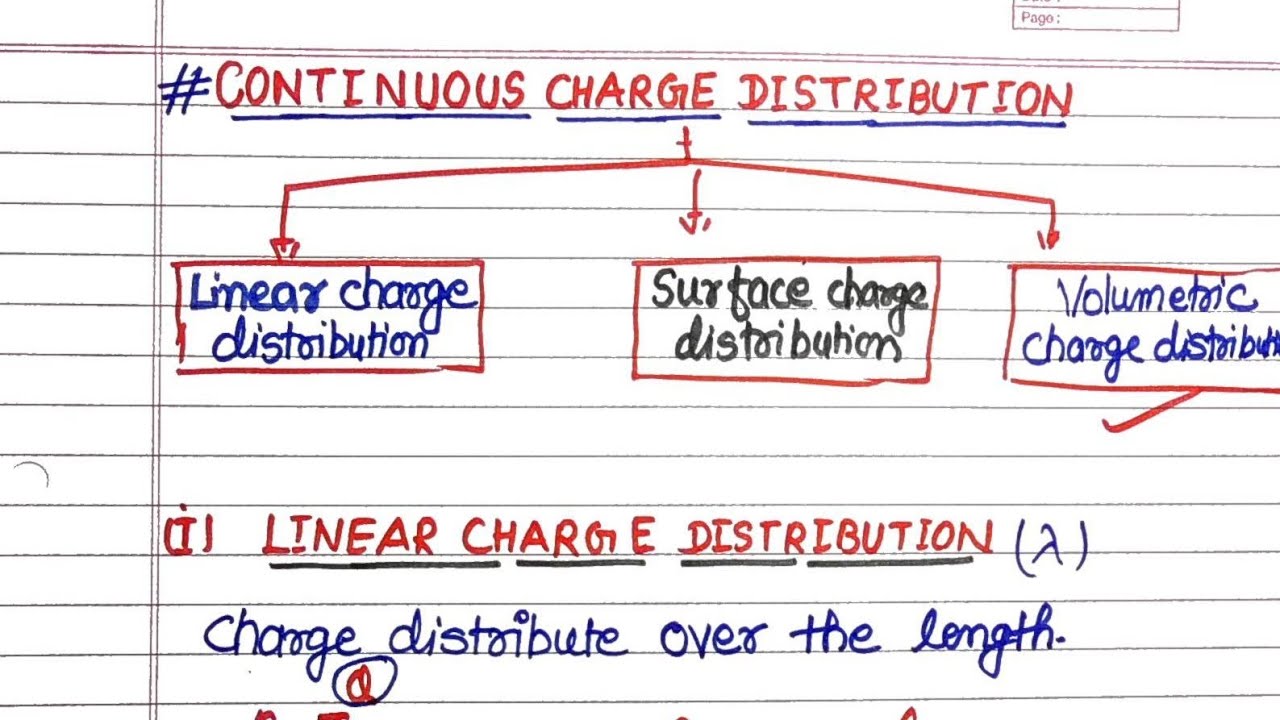 Page:
# CONTINUOUS CHARGE DISTRIBUTION
Linear charge
distribution
Surface charge
distribution
Volumetric
charge distributi
(I) LINEAR CHARGE DISTRIBUTION (λ)
Charge distribute over the length.
Q